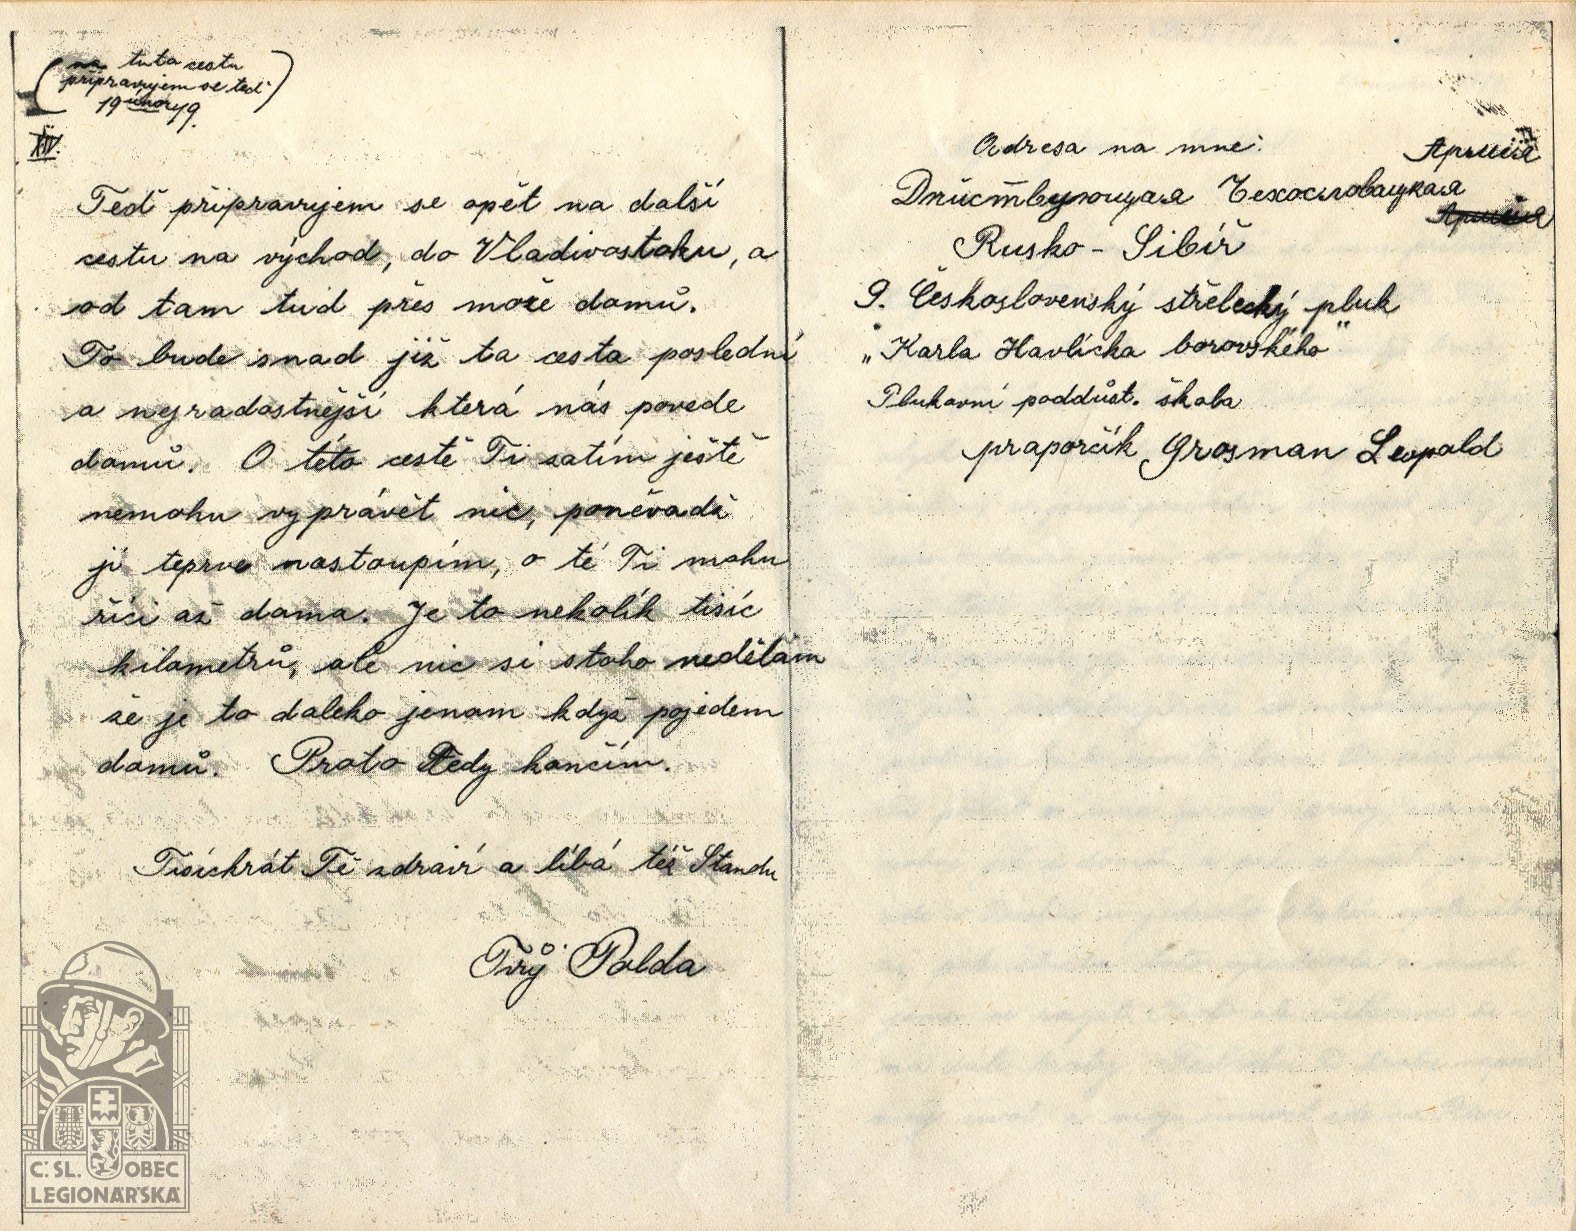 (na tuto cestu
připravujem se teď
19 únor 19.)
XIV.
Teď připravujem se opět na další
cestu na východ, do Vladivostoku, a
od tam tud přes moře domů.
To bude snad již ta cesta poslední
a nejradostnější která nás povede
domů. O této cestě Ti zatím ještě
nemohu vyprávět nic, poněvadž
ji teprve nastoupím, o té Ti mohu
říci až doma. Je to nekolík tisíc
kilometrů, ale nic si stoho nedělám
že je to daleko jenom když pojedem
domů. Proto Tedy končím.
Tisíckrát Tě zdraví a líbá též Standu
Tvůj Polda
Adresa na mne:
Армія
Дѣйствующая Чехословацкая
Армія
Rusko - Sibíř
9. Československý střelecký pluk
„Karla Havlíčka borovského"
Plukovní poddůst. škola
praporčík Grosman Leopold
Č. SL. OBEC
LEGIONÁŘSKÁ